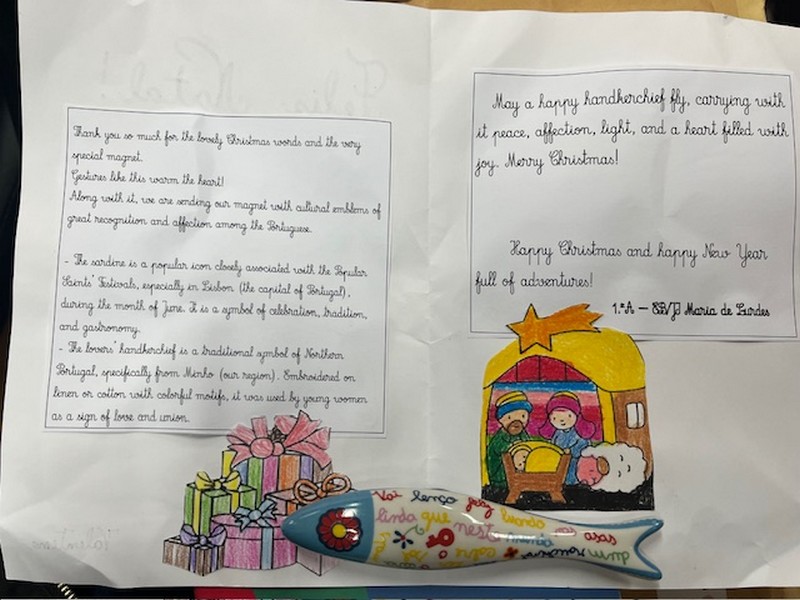 Thank you so much for the lovely Christmas words and the very
special magnet.
Gestures like this warm the heart!
Along with it, we are sending our magnet with cultural emblems of
great recognition and affection among the Portuguese.
- The sardine is a popular icon closely associated with the Popular
Saints' Festivals, especially in Lisbon (the capital of Portugal),
during the month of June. It is a symbol of celebration, tradition,
and gastronomy.
- The lovers' handkerchief is a traditional symbol of Northern
Portugal, specifically from Minho (our region). Embroidered on
linen or cotton with colorful motifs, it was used by young women
as a sign of love and union.
May a happy handkerchief fly, carrying with
it peace, affection, light, and a heart filled with
joy. Merry Christmas!
Happy Christmas and happy New Year
full of adventures!
1.ºA – EB/JI Maria de Lurdes
Feliz Natal!
Vai lenço feliz buando
linda que nesta nas asas